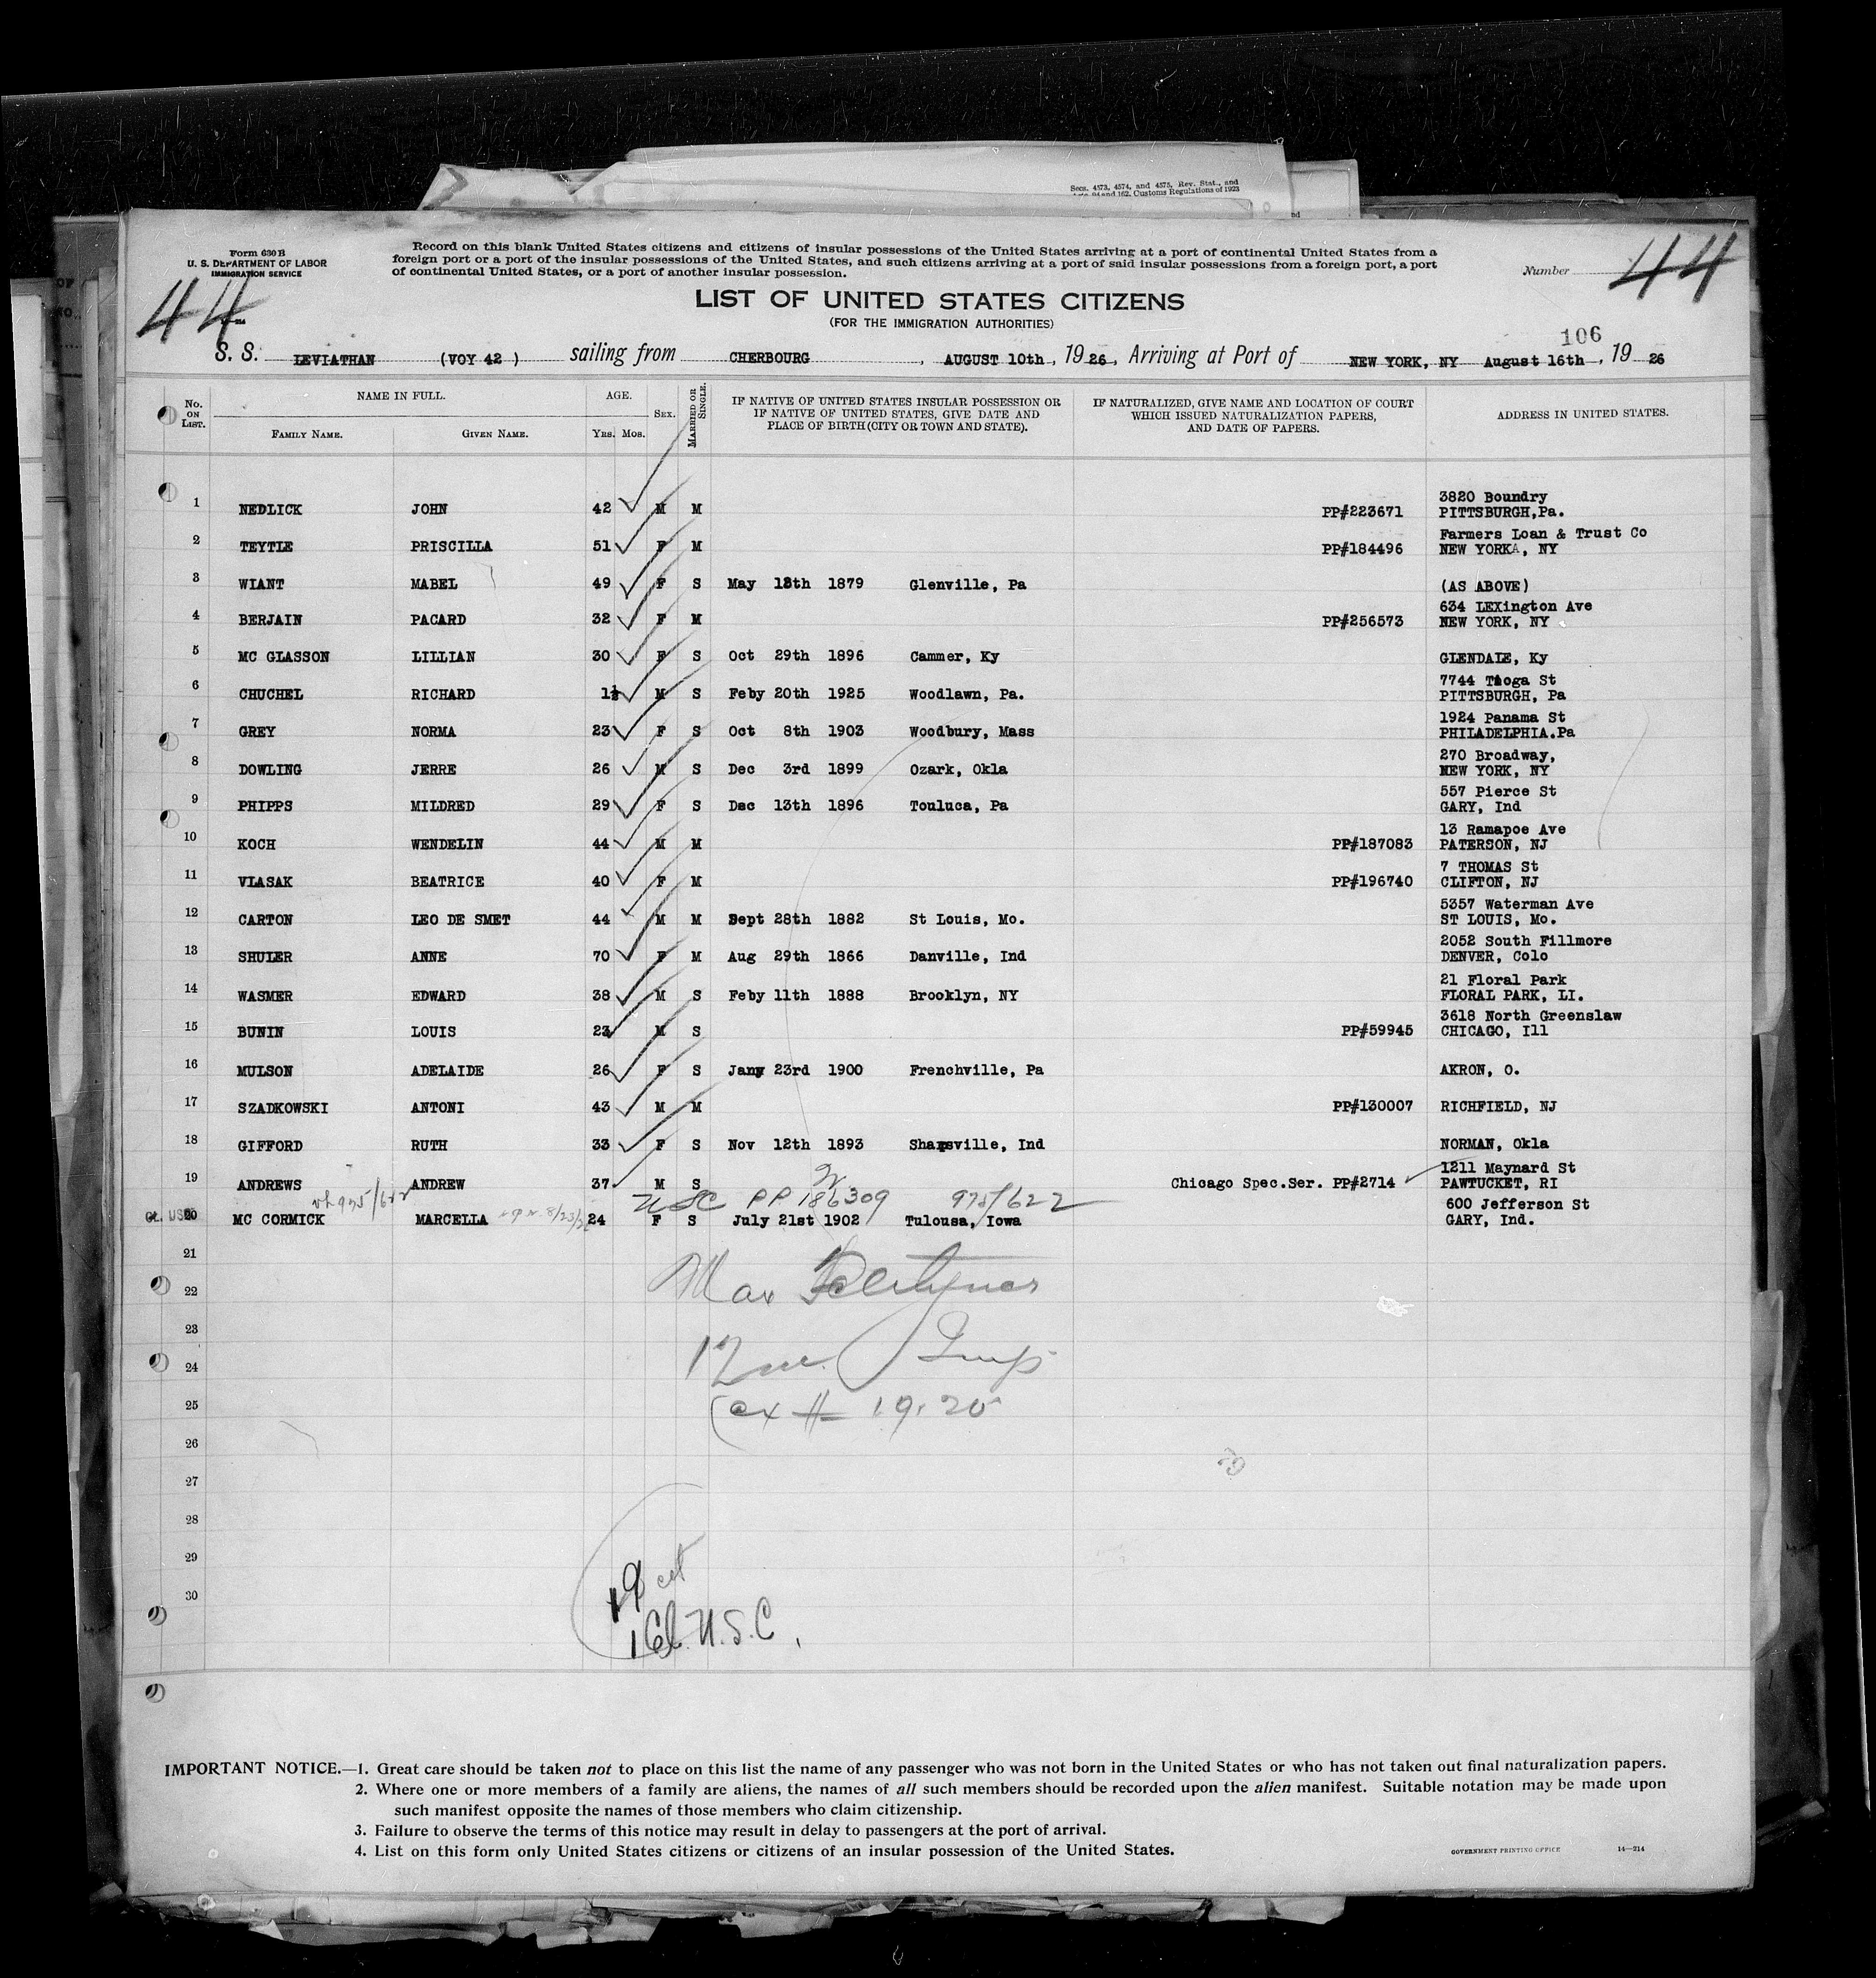 Secs. 4573, 4574, and 4575, Rev. Stat., and
and 162, Customs Regulations of 1923
Form 630 B
U. S. DEPARTMENT OF LABOR
IMMIGRATION SERVICE
Record on this blank United States citizens and citizens of insular possessions of the United States arriving at a port of continental United States from a
foreign port or a port of the insular possessions of the United States, and such citizens arriving at a port of said insular possessions from a foreign port, a port
of continental United States, or a port of another insular possession.
Number 44
44
LIST OF UNITED STATES CITIZENS
(FOR THE IMMIGRATION AUTHORITIES)
106
S. S. LEVIATHAN (VOY 42 ) sailing from CHERBOURG , AUGUST 10th , 19 26 , Arriving at Port of NEW YORK, NY August 16th , 19 26
No. ON LIST. NAME IN FULL. FAMILY NAME. GIVEN NAME. AGE. YRS. MOS. SEX. MARRIED OR SINGLE. IF NATIVE OF UNITED STATES INSULAR POSSESSION OR IF NATIVE OF UNITED STATES, GIVE DATE AND PLACE OF BIRTH (CITY OR TOWN AND STATE). IF NATURALIZED, GIVE NAME AND LOCATION OF COURT WHICH ISSUED NATURALIZATION PAPERS, AND DATE OF PAPERS. ADDRESS IN UNITED STATES.
1 NEDLICK JOHN 42 M M PP#223671 3820 Boundry PITTSBURGH,Pa.
2 TEYTLE PRISCILLA 51 F M PP#184496 Farmers Loan & Trust Co NEW YORK, NY
3 WIANT MABEL 49 F S May 18th 1879 Glenville, Pa (AS ABOVE)
4 BERJAIN PACARD 32 F M PP#256573 634 LEXington Ave NEW YORK, NY
5 MC GLASSON LILLIAN 30 F S Oct 29th 1896 Cammer, Ky GLENDALE, Ky
6 CHUCHEL RICHARD 1½ M S Feby 20th 1925 Woodlawn, Pa. 7744 Tioga St PITTSBURGH, Pa
7 GREY NORMA 23 F S Oct 8th 1903 Woodbury, Mass 1924 Panama St PHILADELPHIA.Pa
8 DOWLING JERRE 26 M S Dec 3rd 1899 Ozark, Okla 270 Broadway, NEW YORK, NY
9 PHIPPS MILDRED 29 F S Dec 13th 1896 Touluca, Pa 557 Pierce St GARY, Ind
10 KOCH WENDELIN 44 M M PP#187083 13 Ramapoe Ave PATERSON, NJ
11 VLASAK BEATRICE 40 F M PP#196740 7 THOMAS St CLIFTON, NJ
12 CARTON LEO DE SMET 44 M M Sept 28th 1882 St Louis, Mo. 5357 Waterman Ave ST LOUIS, Mo.
13 SHULER ANNE 70 F M Aug 29th 1866 Danville, Ind 2052 South Fillmore DENVER, Colo
14 WASMER EDWARD 38 M S Feby 11th 1888 Brooklyn, NY 21 Floral Park FLORAL PARK, LI.
15 BUNIN LOUIS 23 M S PP#59945 3618 North Greenslaw CHICAGO, Ill
16 MULSON ADELAIDE 26 F S Jany 23rd 1900 Frenchville, Pa AKRON, O.
17 SZADKOWSKI ANTONI 43 M M PP#130007 RICHFIELD, NJ
18 GIFFORD RUTH 33 F S Nov 12th 1893 Sharpsville, Ind NORMAN, Okla
19 ANDREWS ANDREW 37 M S Chicago Spec.Ser. PP#2714 1211 Maynard St PAWTUCKET, RI
975/622 USC PP 186309 975/622
Cl. USC 20 MC CORMICK MARCELLA 8/23/26 24 F S July 21st 1902 Tulousa, Iowa 600 Jefferson St GARY, Ind.
21
22 Max
23
24 Insp
25 ex # 19, 20
26
27
28
29
30
19 cit
1 Cl. U.S.C.
IMPORTANT NOTICE.—1. Great care should be taken not to place on this list the name of any passenger who was not born in the United States or who has not taken out final naturalization papers.
2. Where one or more members of a family are aliens, the names of all such members should be recorded upon the alien manifest. Suitable notation may be made upon
such manifest opposite the names of those members who claim citizenship.
3. Failure to observe the terms of this notice may result in delay to passengers at the port of arrival.
4. List on this form only United States citizens or citizens of an insular possession of the United States.
GOVERNMENT PRINTING OFFICE 14—214